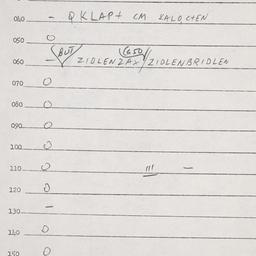 040 - QKLAP+ CM KALOCTEN
050 O
BUT
060 - ZIDLENZAX/ZIDLENBRIDLEN
070 O
080 O
090 O
100 O
110 O !!! -
120 O
130 -
140 O
150 O